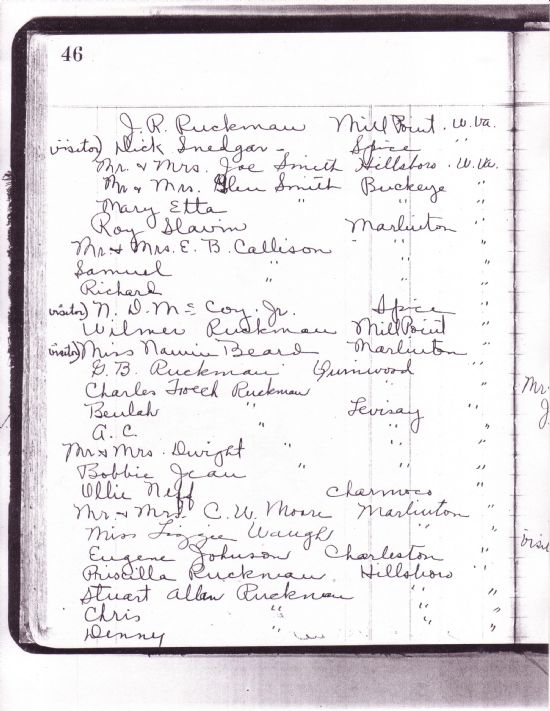 46
J. R. Ruckman Mill Point. W. Va.
visitor) Dick Snedgar - Spice "
Mr. & Mrs. Joe Smith Hillsboro. W. Va.
Mr & Mrs. Glen Smith Buckeye "
Mary Etta " " "
Roy Slavin Marlinton "
Mr. & Mrs. E. B. Callison " "
Samuel " " "
Richard " " "
visitor) N. D. McCoy, Jr. Spice "
Wilmer Ruckman Mill Point "
visitor) Miss Beard Marlinton "
G. B. Ruckman "
Charles Ruckman " "
Beulah " Levisay "
A. C. " " "
Mr & Mrs. Dwight " " "
Bobbie Jean " " "
Ollie Neff Charmoco "
Mr & Mrs. C. W. Moore Marlinton "
Miss Lizzie Waugh " "
Eugene Johnson Charleston "
Priscilla Ruckman Hillsboro "
Stuart Allen Ruckman " "
Chris " " "
Denny " " "
Mr.
J.